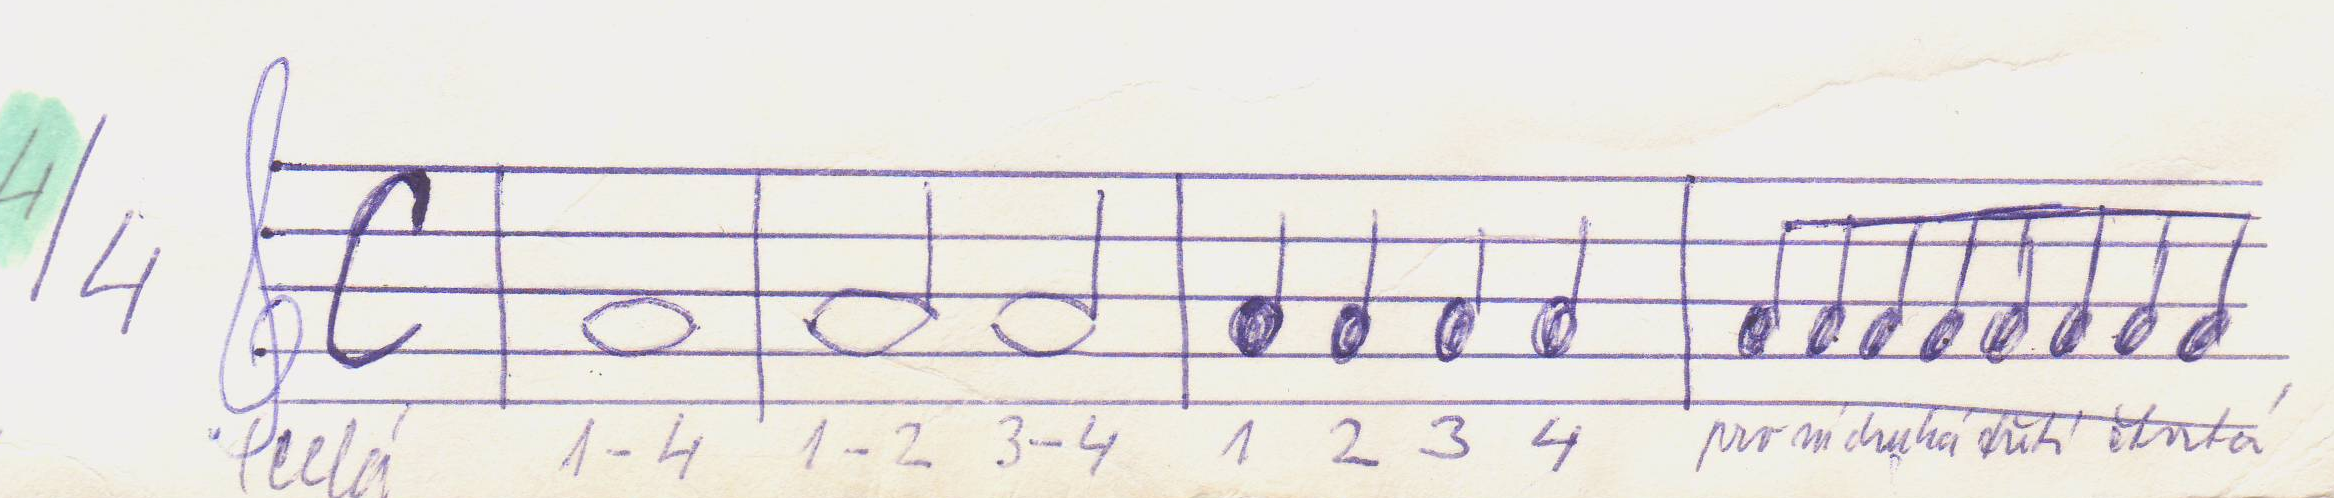 4/4
C
celá 1-4 1-2 3-4 1 2 3 4 první druhá třetí čtvrtá